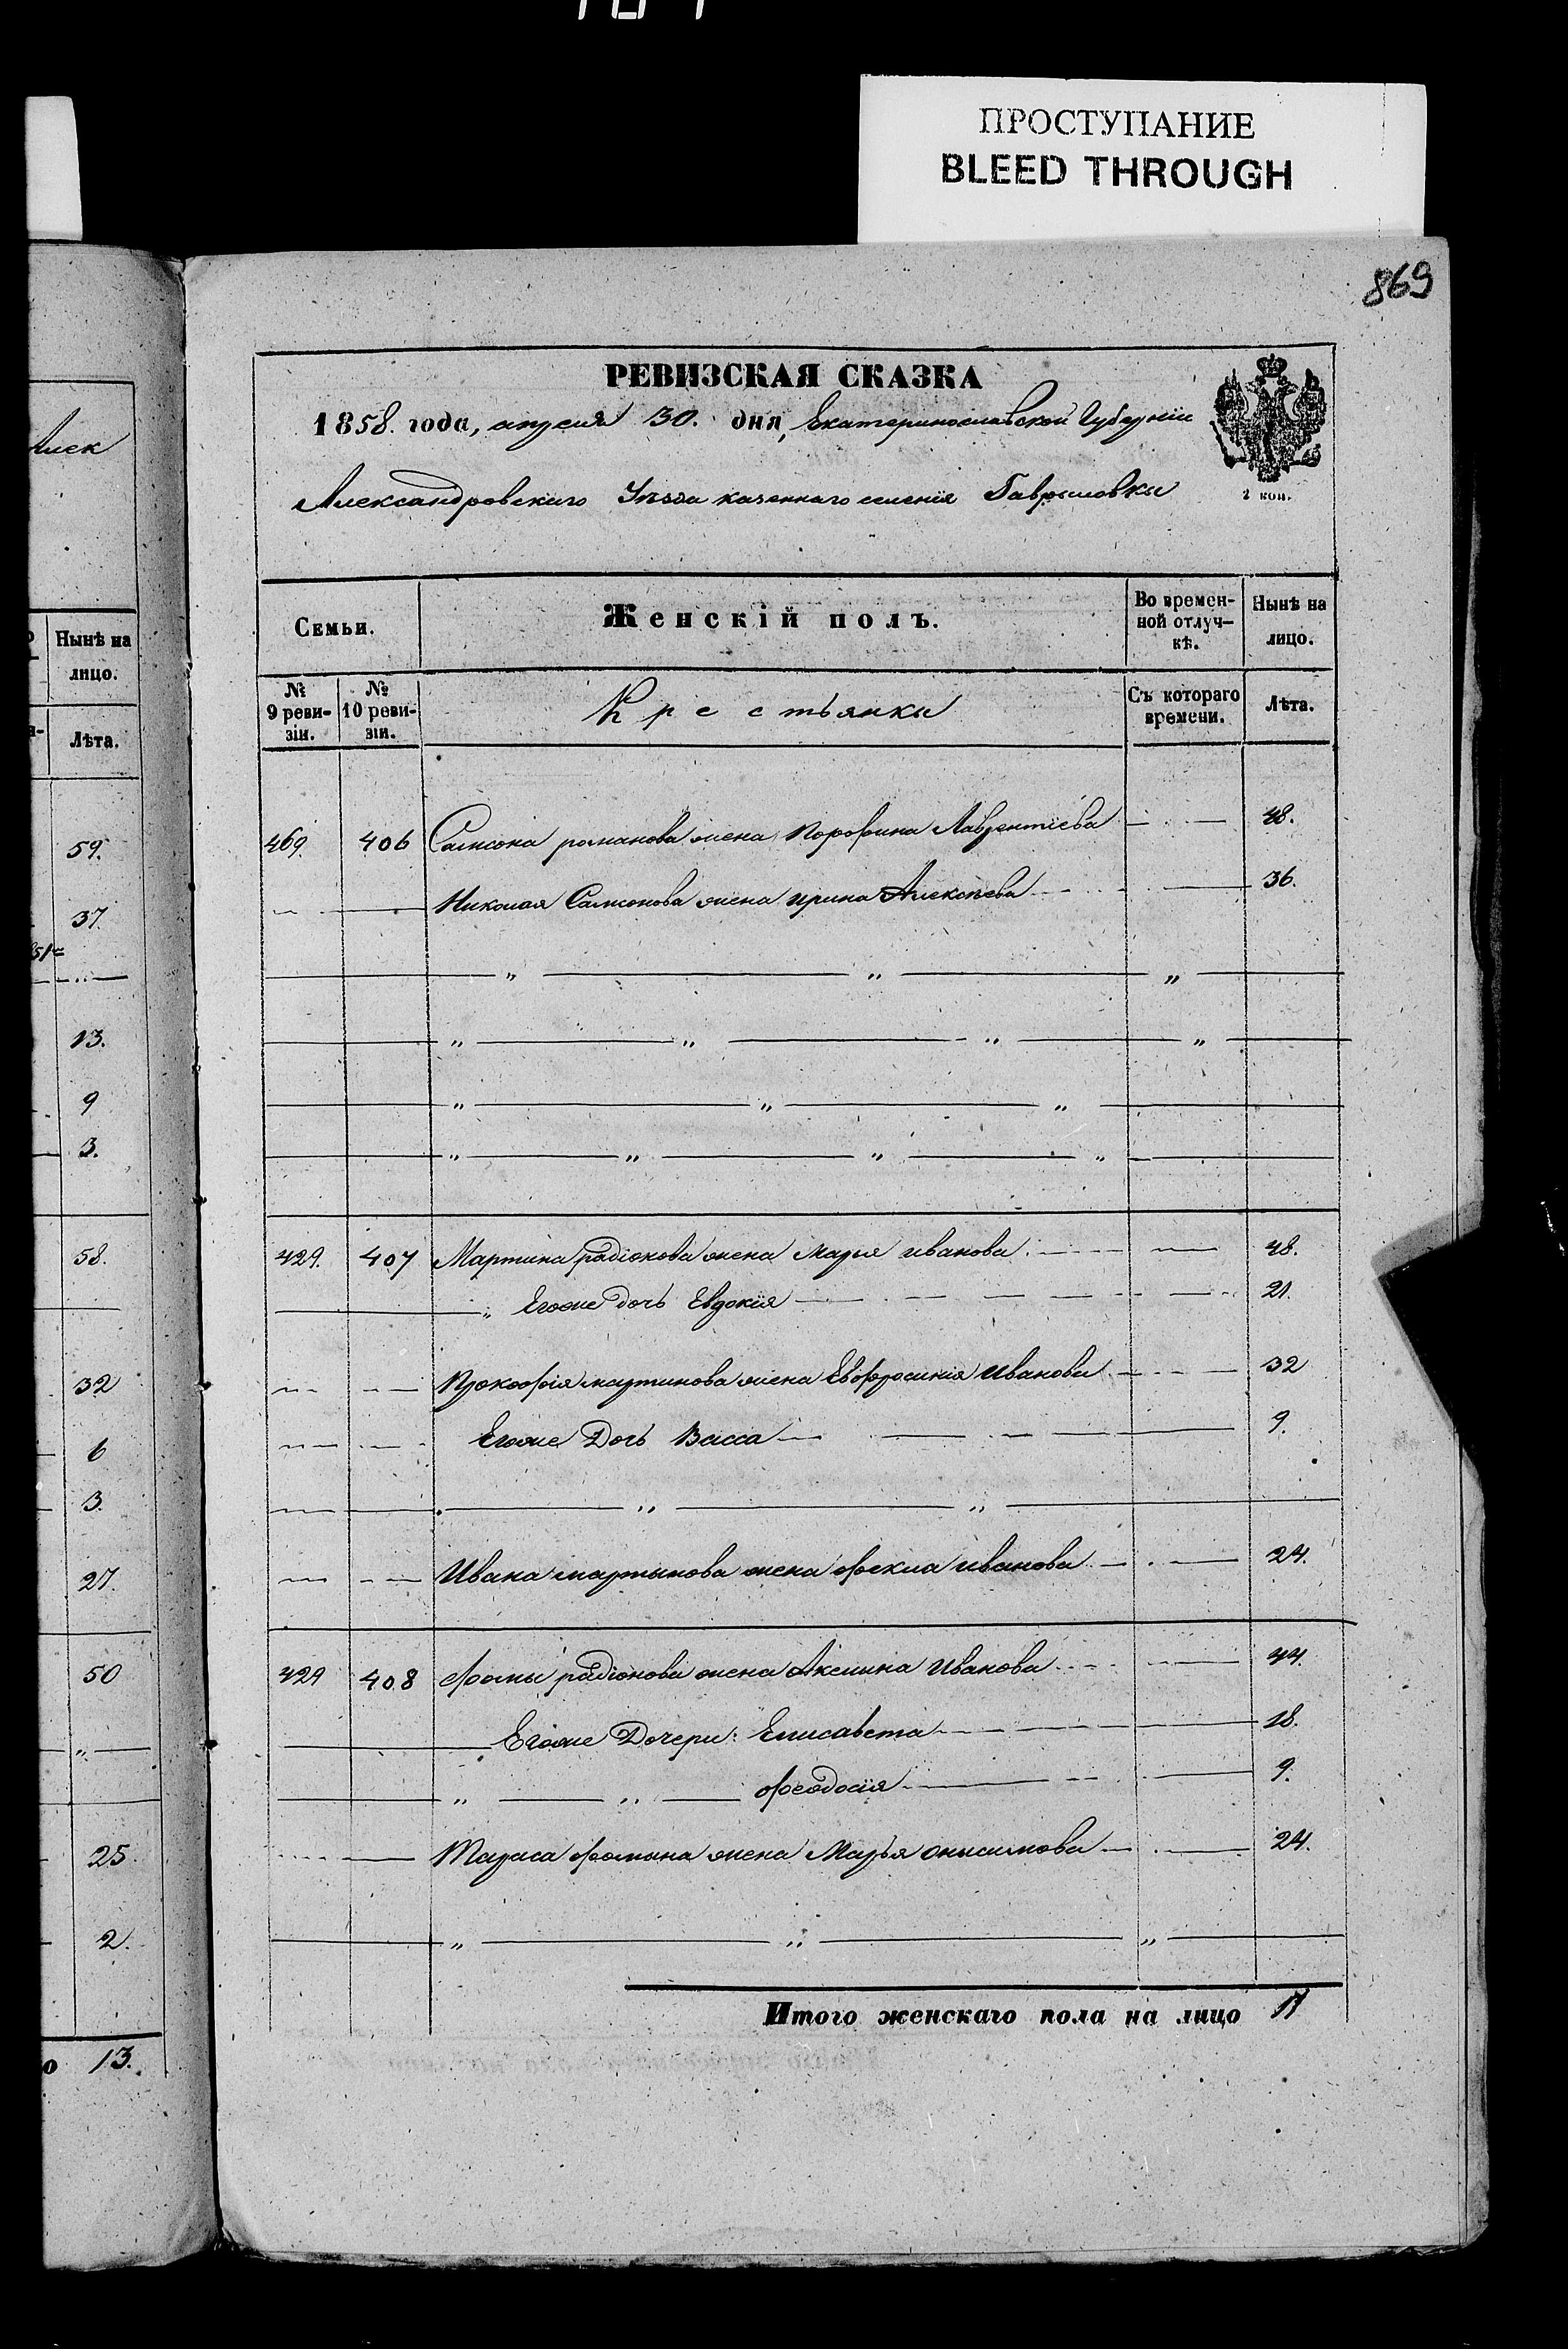 ПРОСТУПАНИЕ
BLEED THROUGH
869
РЕВИЗСКАЯ СКАЗКА
1858. года, апреля 30. дня, Екатеринославской Губерніи
Александровскаго Уезда казеннаго селенія Гавриловки
2 коп.
Семьи. Женскій полъ. Во времен- Нынѣ на
ной отлуч- лицо.
кѣ.
№ № Крестьянки Съ котораго Лѣта.
9 реви- 10 реви- времени.
зіи. зіи.
469. 406 Самсона романова жена Порофина Лаврентіева 48.
Николая Самсонова жена ирина Алексѣева 36.
429. 407 Мартина радіонова жена марья иванова 48.
Егоже дочь Евдокія 21.
Прокофія мартинова жена Евфросинія Иванова 32
Егоже Дочь Васса 9.
Ивана мартынова жена фекла иванова 24.
429 408 Фомы радіонова жена Аксиина Иванова 44.
Егоже Дочери: Елисавета 18.
феодосія 9.
Тараса фомина жена Марья онисимова 24.
Итого женскаго пола на лицо 11
Алек
Нынѣ на
лицо.
Лѣта.
59.
37.
13.
9
3.
58.
32
6
3.
27.
50
25.
2.
о 13.